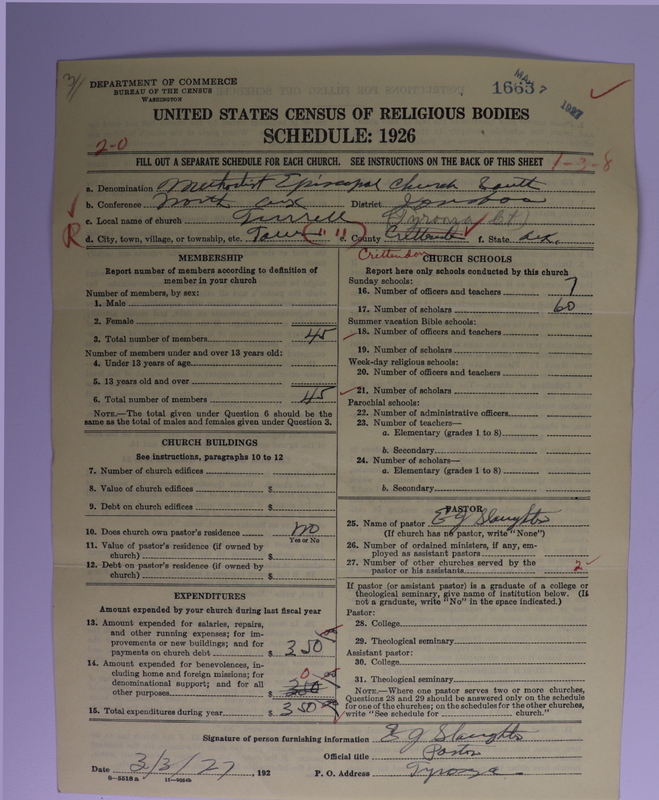 DEPARTMENT OF COMMERCE
BUREAU OF THE CENSUS
WASHINGTON
MAR 7 1927
1663
UNITED STATES CENSUS OF RELIGIOUS BODIES
SCHEDULE: 1926
2-0
FILL OUT A SEPARATE SCHEDULE FOR EACH CHURCH. SEE INSTRUCTIONS ON THE BACK OF THIS SHEET
1-3-8
a. Denomination Methodist Episcopal Church South
b. Conference North Ark District Jonesboro
c. Local name of church Turrell (Tyronza Ct)
R d. City, town, village, or township, etc. Town (" ") e. County Crittenden f. State Ark.
Crittendon
MEMBERSHIP
Report number of members according to definition of
member in your church
Number of members, by sex:
1. Male
2. Female
3. Total number of members 45
Number of members under and over 13 years old:
4. Under 13 years of age
5. 13 years old and over
6. Total number of members 45
NOTE.—The total given under Question 6 should be the
same as the total of males and females given under Question 3.
CHURCH BUILDINGS
See instructions, paragraphs 10 to 12
7. Number of church edifices
8. Value of church edifices $
9. Debt on church edifices $
10. Does church own pastor's residence no
Yes or No
11. Value of pastor's residence (if owned by
church) $
12. Debt on pastor's residence (if owned by
church) $
EXPENDITURES
Amount expended by your church during last fiscal year
13. Amount expended for salaries, repairs,
and other running expenses; for im-
provements or new buildings; and for
payments on church debt $ 350 00
14. Amount expended for benevolences, in-
cluding home and foreign missions; for
denominational support; and for all
other purposes $ 350 00
0
15. Total expenditures during year $ 350 00
CHURCH SCHOOLS
Report here only schools conducted by this church
Sunday schools:
16. Number of officers and teachers 7
17. Number of scholars 60
Summer vacation Bible schools:
18. Number of officers and teachers
19. Number of scholars
Week-day religious schools:
20. Number of officers and teachers
21. Number of scholars
Parochial schools:
22. Number of administrative officers
23. Number of teachers—
a. Elementary (grades 1 to 8)
b. Secondary
24. Number of scholars—
a. Elementary (grades 1 to 8)
b. Secondary
PASTOR
25. Name of pastor E G Slaughter
(If church has no pastor, write "None")
26. Number of ordained ministers, if any, em-
ployed as assistant pastors
27. Number of other churches served by the
pastor or his assistants 2
If pastor (or assistant pastor) is a graduate of a college or
theological seminary, give name of institution below. (If
not a graduate, write "No" in the space indicated.)
Pastor:
28. College
29. Theological seminary
Assistant pastor:
30. College
31. Theological seminary
NOTE.—Where one pastor serves two or more churches,
Questions 28 and 29 should be answered only on the schedule
for one of the churches; on the schedules for the other churches,
write "See schedule for church."
Signature of person furnishing information E G Slaughter
Official title Pastor
Date 3/3/27, 192 P. O. Address Tyronza
8-5518 a